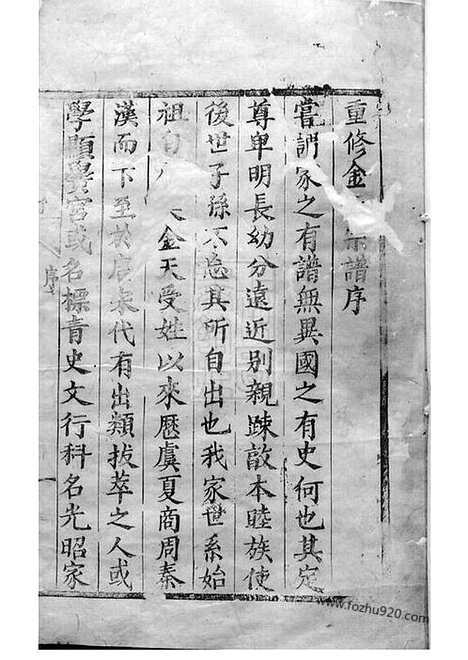 重修金宗譜序
嘗謂家之有譜無異國之有史何也其定
尊卑明長幼分遠近別親踈敵本睦族使
後世子孫不忘其所自出也我家世系始
祖自金天受姓以來歷虞夏商周秦
漢而下至於唐宋代有出類拔萃之人或
學顯黌宮或名標青史文行科名光昭家
序
www.fozhu920.com